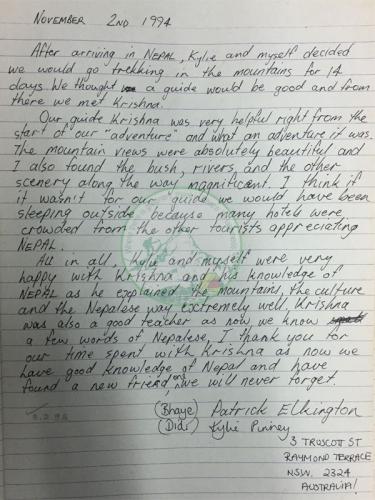 NOVEMBER 2ND 1994
After arriving in NEPAL, Kylie and myself decided
we would go trekking in the mountains for 14
days. We thought a guide would be good and from
there we met Krishna.
Our guide Krishna was very helpful right from the
start of our "adventure" and what an adventure it was.
The mountain views were absolutely beautiful and
I also found the bush, rivers, and the other
scenery along the way magnificent. I think if
it wasn't for our guide we would have been
sleeping outside because many hotels were
crowded from the other tourists appreciating
NEPAL.
All in all, Kylie and myself were very
happy with Krishna and his knowledge of
NEPAL as he explained the mountains, the culture
and the Nepalese way extremely well, Krishna
was also a good teacher as now we know
a few words of Nepalese, I thank you for
our time spent with Krishna as now we
have good knowledge of Nepal and have
found a new friend, one we will never forget.
(Bhaye) Patrick Elkington
(Didi) Kylie Pinney
3 TRUSCOTT ST
RAYMOND TERRACE
N.S.W. 2324
AUSTRALIA!